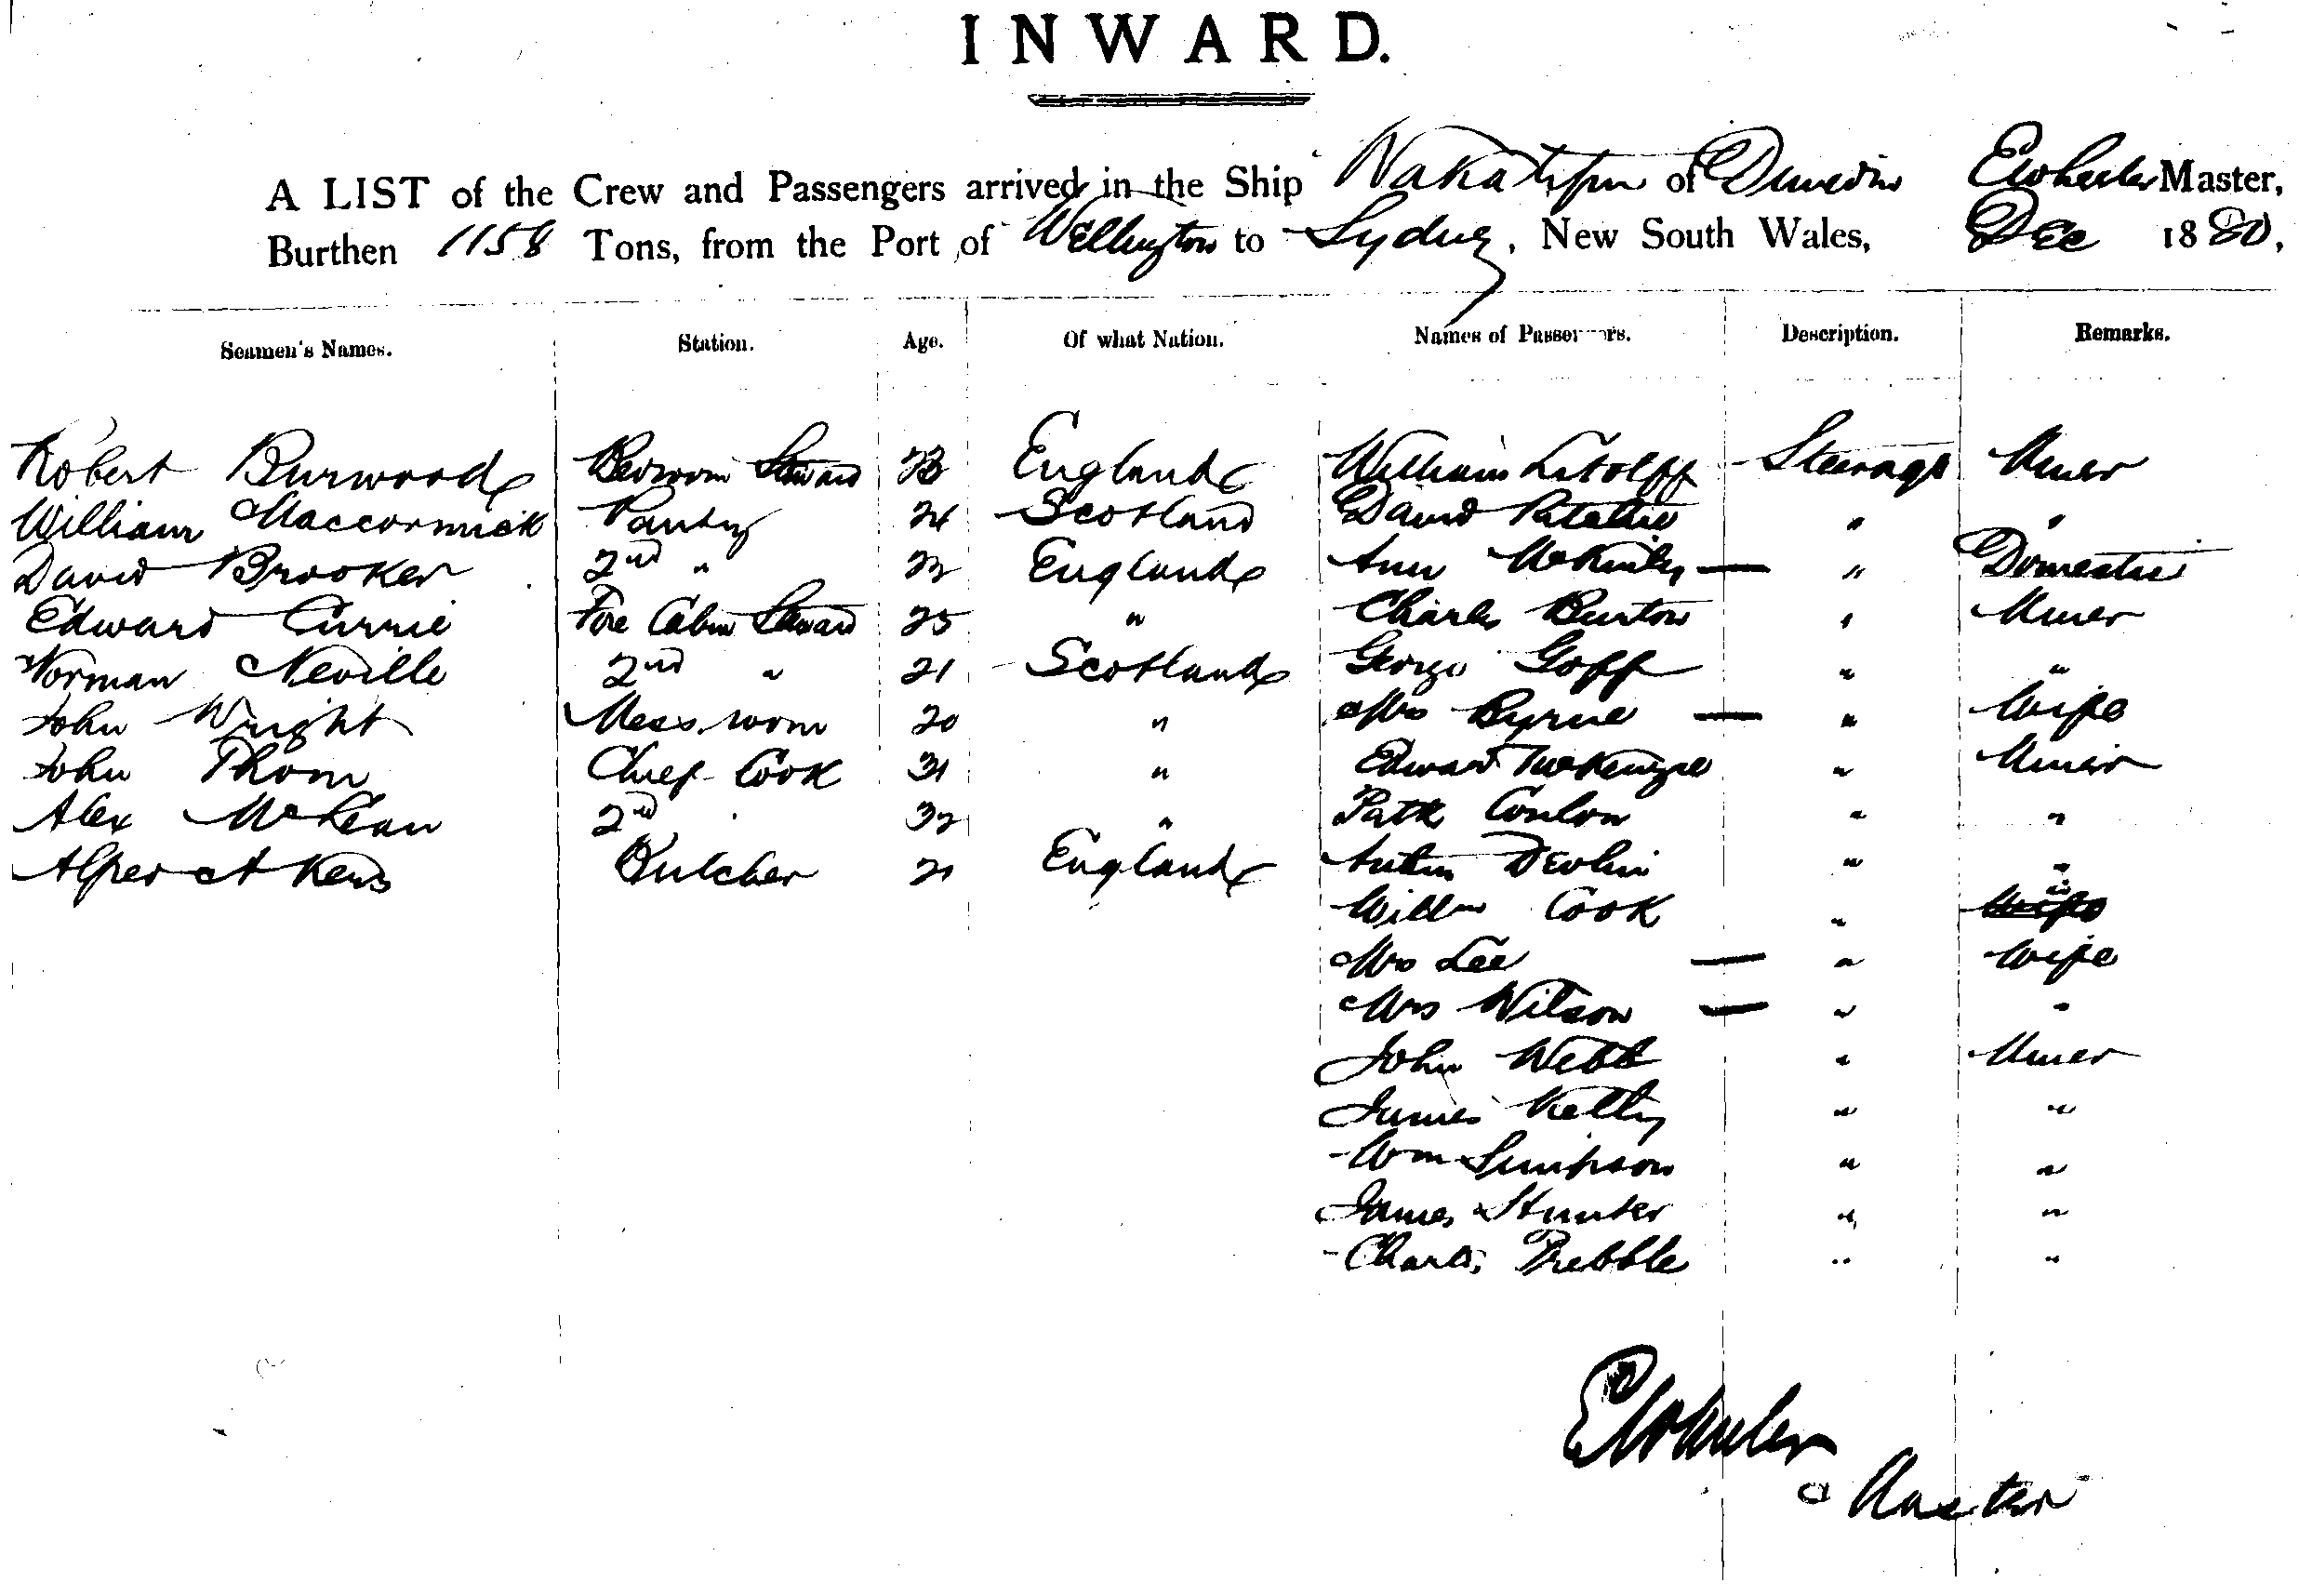 INWARD.
A LIST of the Crew and Passengers arrived in the Ship Wakatipu of Dunedin E Wheeler Master,
Burthen 1158 Tons, from the Port of Wellington to Sydney, New South Wales, Dec 1880,
Seamen's Names. Station. Age. Of what Nation. Names of Passengers. Description. Remarks.
Robert Burwood Bedroom Steward England William Steerage Miner
William Maccormick Pantry 24 Scotland David Ritchie " "
David Brooker 2nd " England Ann McKinley — " Domestic
Edward Currie Fore Cabin Steward 25 " Charles Burton " Miner
Norman Neville 2nd " 21 Scotland George Goff " "
John Wright Mess room 20 " Mrs Byrne — " Wife
John Thom Chief Cook 31 " Edward McKenzie " Miner
Alex McLean 2nd 32 " Patk Conlon " "
Alfred Akens Butcher 21 England Devlin " "
Willm Cook " "
Mrs Lee — " Wife
Mrs Wilson — " "
John Webb " Miner
James Kelly " "
Wm Simpson " "
James Hunter " "
Charls Prebble " "
E Wheeler
Master